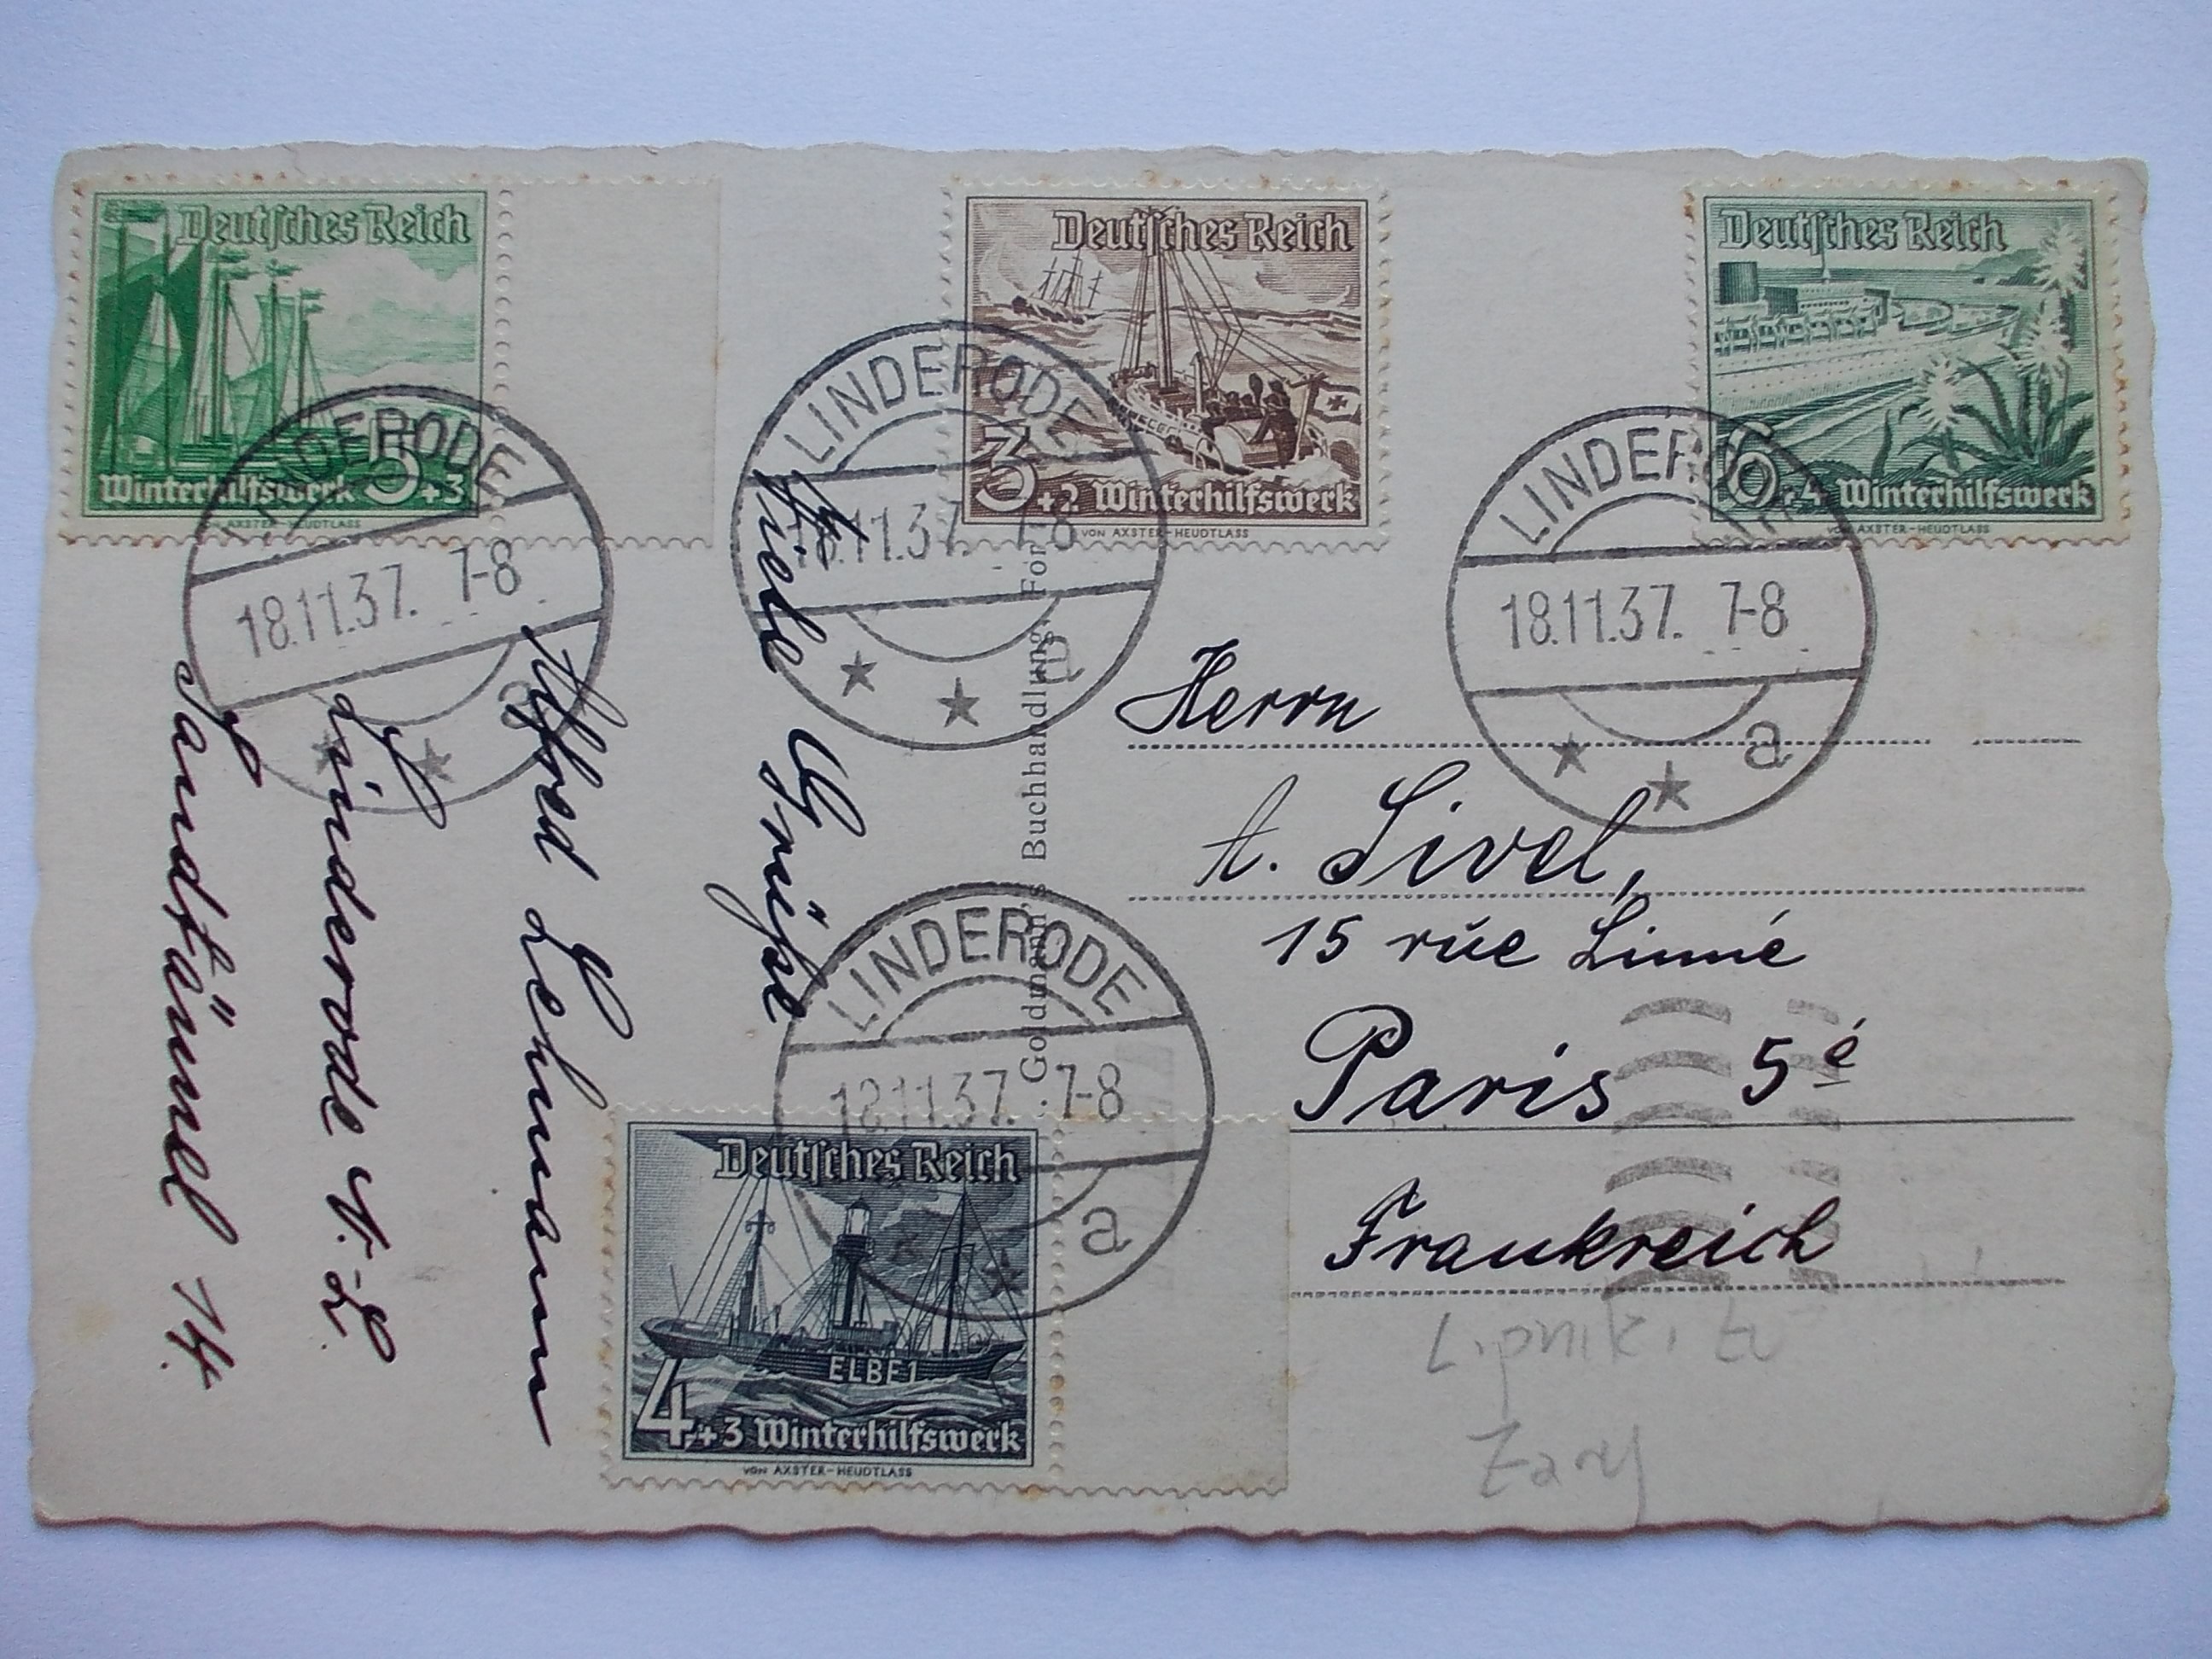 Deutsches Reich
Winterhilfswerk 5+3
VON AXSTER-HEUDTLASS
Deutsches Reich
3+2 Winterhilfswerk
VON AXSTER-HEUDTLASS
Deutsches Reich
6+4 Winterhilfswerk
VON AXSTER-HEUDTLASS
LINDERODE
18.11.37. 7-8
a
LINDERODE
18.11.37. 7-8
a
LINDERODE
18.11.37. 7-8
a
Viele Grüße
Alfred Lehmann
Linderode N.-L.
14.
Goldmann's Buchhandlung,
Herrn
A. Sivel,
15 rue Linné
Paris 5e
Frankreich
LINDERODE
18.11.37. 7-8
a
Deutsches Reich
ELBE 1
4+3 Winterhilfswerk
VON AXSTER-HEUDTLASS
Lipniki
Zary